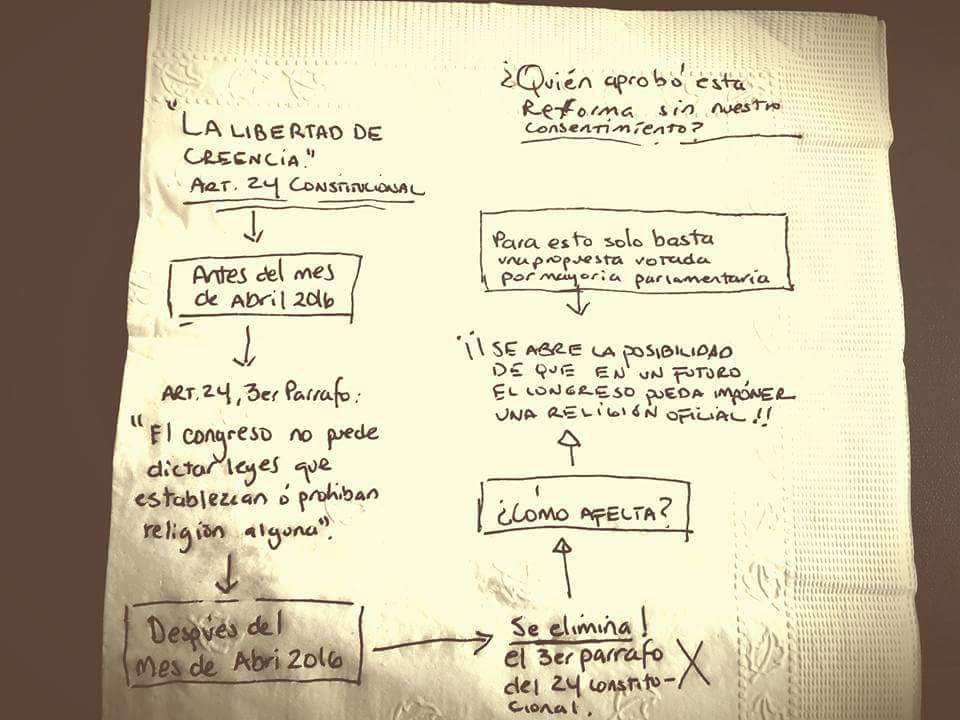 "LA LIBERTAD DE
CREENCIA."
ART. 24 CONSTITUCIONAL
Antes del mes
de Abril 2016
ART. 24, 3er Parrafo:
"El congreso no puede
dictar leyes que
establezcan ó prohiban
religión alguna".
Después del
Mes de Abri 2016
Se elimina!
el 3er parrafo
del 24 constitu-
cional.
X
¿CÓMO AFECTA?
¡¡ SE ABRE LA POSIBILIDAD
DE QUE EN UN FUTURO
EL CONGRESO PUEDA IMPONER
UNA RELIGIÓN OFICIAL!!
Para esto solo basta
una propuesta votada
por mayoria parlamentaria
¿Quién aprobó esta
Refforma sin nuestro
consentimiento?